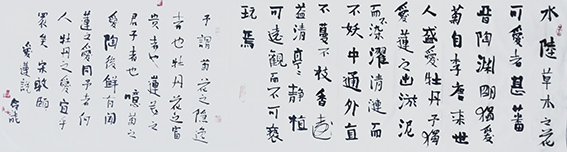 水陸草木之花
可愛者甚蕃
晉陶淵明獨愛
菊自李唐来世
人盛愛牡丹予獨
愛蓮之出淤泥
而不染濯清漣而
不妖中通外直
不蔓不枝香遠
益清亭々静植
可遠觀而不可褻
玩焉
予謂菊花之隐逸
者也牡丹花之富
貴者也蓮花之
君子者也噫菊之
愛陶後鮮有闻
蓮之愛同予者何
人牡丹之愛宜乎
衆矣宋敦颐
愛蓮説